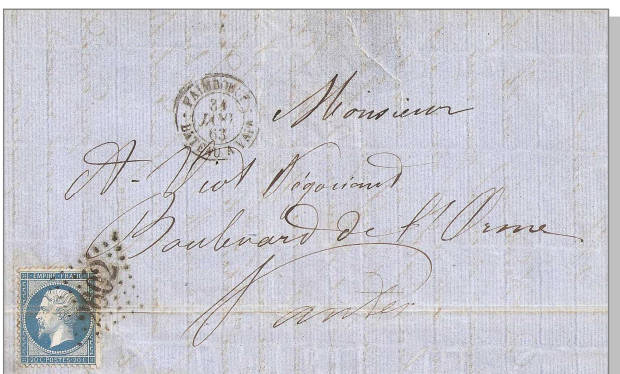 PAIMBŒUF
31
AOU
63
BATEAU A VAP
Monsieur
A. Viot Négociant
Boulevard de l'Orme
Nantes
EMPIRE FRANC
20 C POSTES 20 C